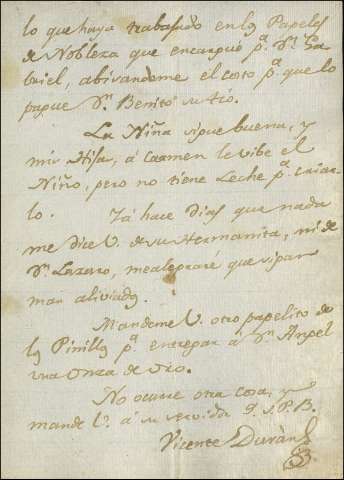 lo que haya trabajado en los Papeles
de Nobleza que encargué pª. Dn. Ga
briel, abisandome el costo pª. que lo
pague Dn. Benito su tio.
La Niña sigue buena, y
mi Hija, á Carmen le vibe el
Niño, pero no tiene Leche pª. criar
lo. Yá hace dias que nada
me dice V. de su Hermanita, ni de
Dn. Lazaro, me alegraré que sigan
mas aliviados.
Mandeme V. otro papelito de
los Pinillos pª. entregar á Dn. Angel
una Onza de Oro.
No ocurre otra cosa, y
mande V. á su servidor q. s. P. B.
Vicente Durán